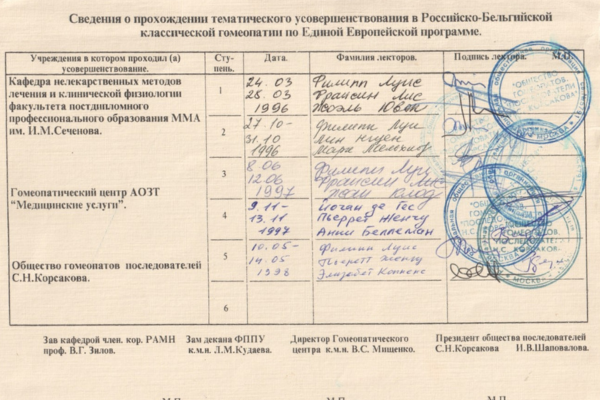 Сведения о прохождении тематического усовершенствования в Российско-Бельгийской
классической гомеопатии по Единой Европейской программе.
Учреждения в котором проходил (а)
усовершенствование.
Сту-
пень.
Дата.
Фамилия лекторов.
Подпись лектора.
М.П.
Кафедра нелекарственных методов
лечения и клинической физиологии
факультета постдипломного
профессионального образования ММА
им. И.М.Сеченова.
1
24.03
28.03
1996
Филипп Луис
Франсин Лис
Жоэль
2
27.10-
31.10
1996
Филипп Луи
Марк
3
8.06
12.06
1997
Филипп Луи
Франсин
Гомеопатический центр АОЗТ
“Медицинские услуги”.
4
9.11-
13.11
1997
Йоган де
Пьеррет
Анни
Общество гомеопатов последователей
С.Н.Корсакова.
5
10.05-
14.05
1998
Филипп Луис
Пьеретт
Элизабет
6
Зав кафедрой член. кор. РАМН
проф. В.Г. Зилов.
Зам декана ФППУ
к.м.н. Л.М.Кудаева.
Директор Гомеопатического
центра к.м.н. В.С. Мищенко.
Президент общества последователей
С.Н.Корсакова И.В.Шаповалова.
М.П.
М.П.
М.П.